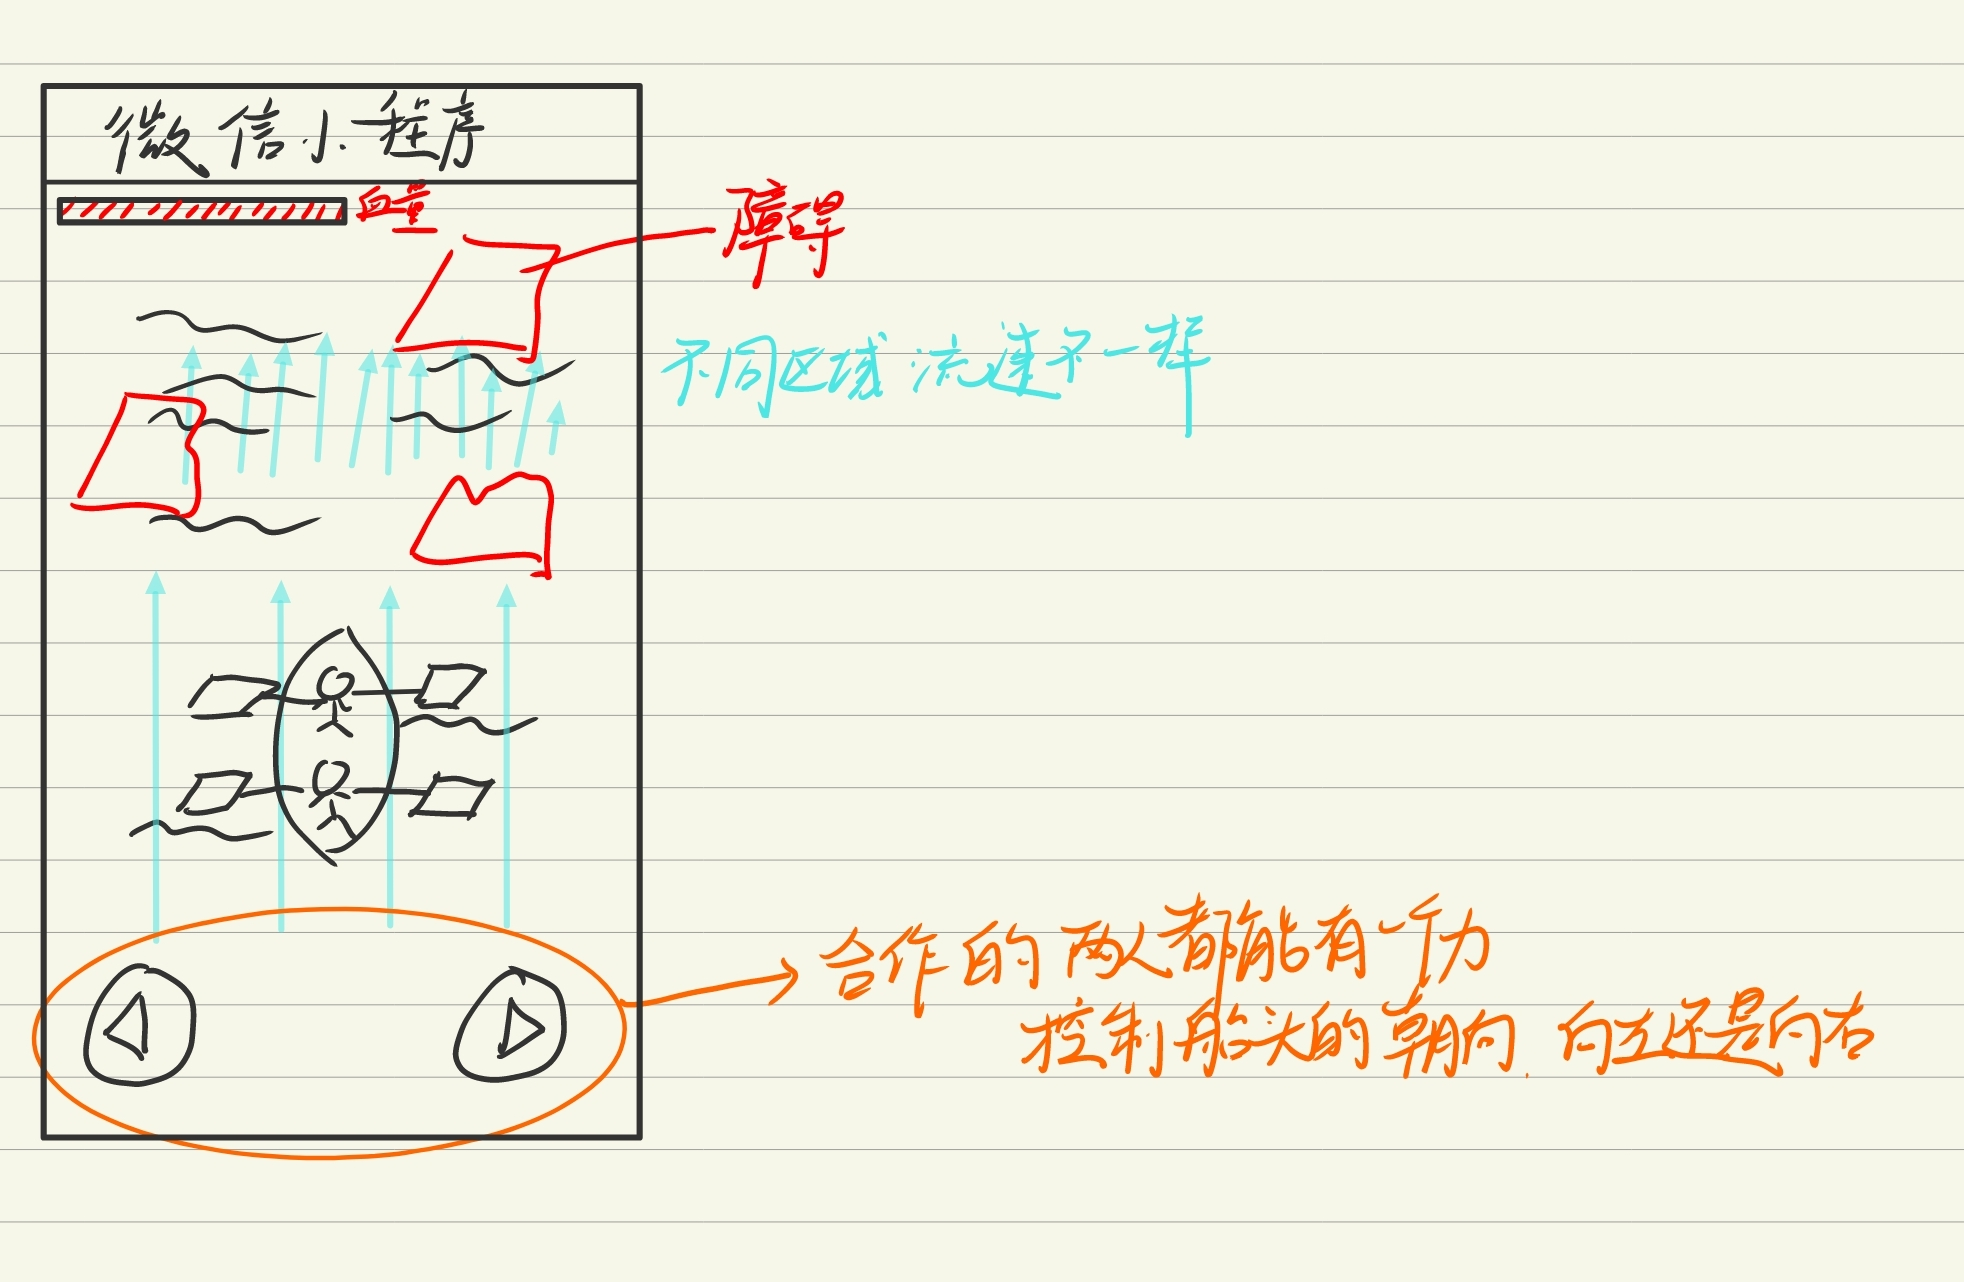 微信小程序
血量
障碍
不同区域流速不一样
合作的两人都能有一个力
控制船头的朝向,向左还是向右